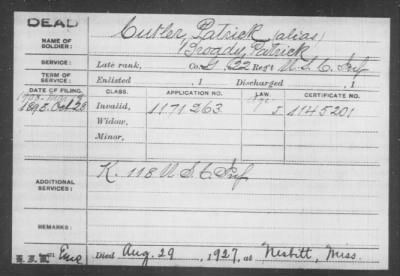 DEAD
NAME OF SOLDIER: Cutler, Patrick (alias)
Broady, Patrick
SERVICE: Late rank, Co. G, 122 Reg't U S C Inf
TERM OF SERVICE: Enlisted , 1 Discharged , 1
DATE OF FILING. CLASS. APPLICATION NO. LAW. CERTIFICATE NO.
1895. Oct. 25 Invalid, 1171263 J 1145201
Widow,
Minor,
ADDITIONAL SERVICES: K. 118 U S C Inf
REMARKS:
Died Aug. 29, 1927, at Nesbitt, Miss.